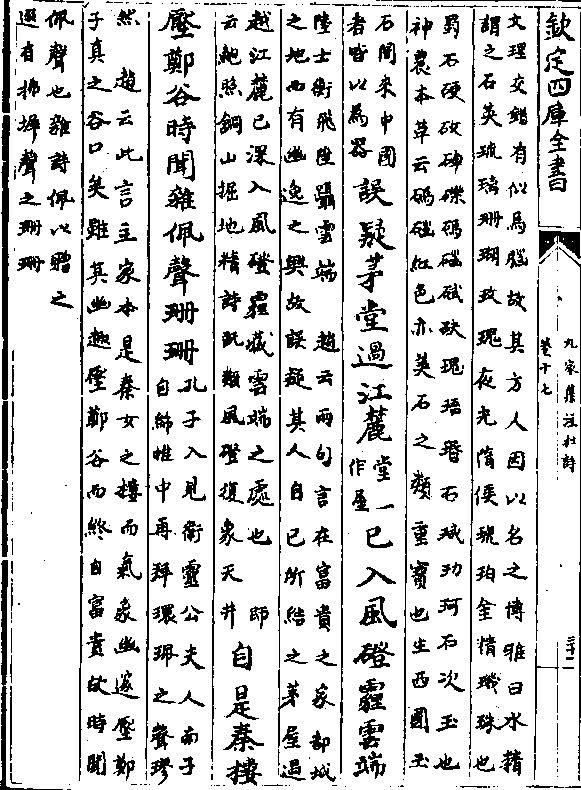 欽定四庫全書
九家集注杜詩
卷十七
文理交錯有似馬腦故其方人因以名之博雅曰水精
謂之石英琥璃珊瑚玫瑰夜光隋侯琥珀金精璣珠也
蜀石硬砇硨磲碼磘碔砆瑰珸瑿石珹玏珂石次玉也
神農本草云碼磘紅色亦美石之類重寶也生西國玉
石間來中國
者皆以為器
誤疑茅堂過江麓
堂一
作屋
已入風磴霾雲端
陸士衡飛陛躡雲端
趙云兩句言在富貴之家都城
之地而有幽逸之興故誤疑其人自已所結之茅屋過
越江麓已深入風磴霾藏雲端之處也
師
云鮑照銅山掘地精詩既類風磴復象天井
自是秦樓
壓鄭谷時聞雜佩聲珊珊
孔子入見衛靈公夫人南子
自絺帷中再拜環珮之聲璆
然
趙云此言主家本是秦女之樓而氣象幽邃壓鄭
子真之谷口矣雖其幽趣壓鄭谷而終自富貴故時聞
佩聲也雜詩佩以贈之
選有拂墀聲之珊珊